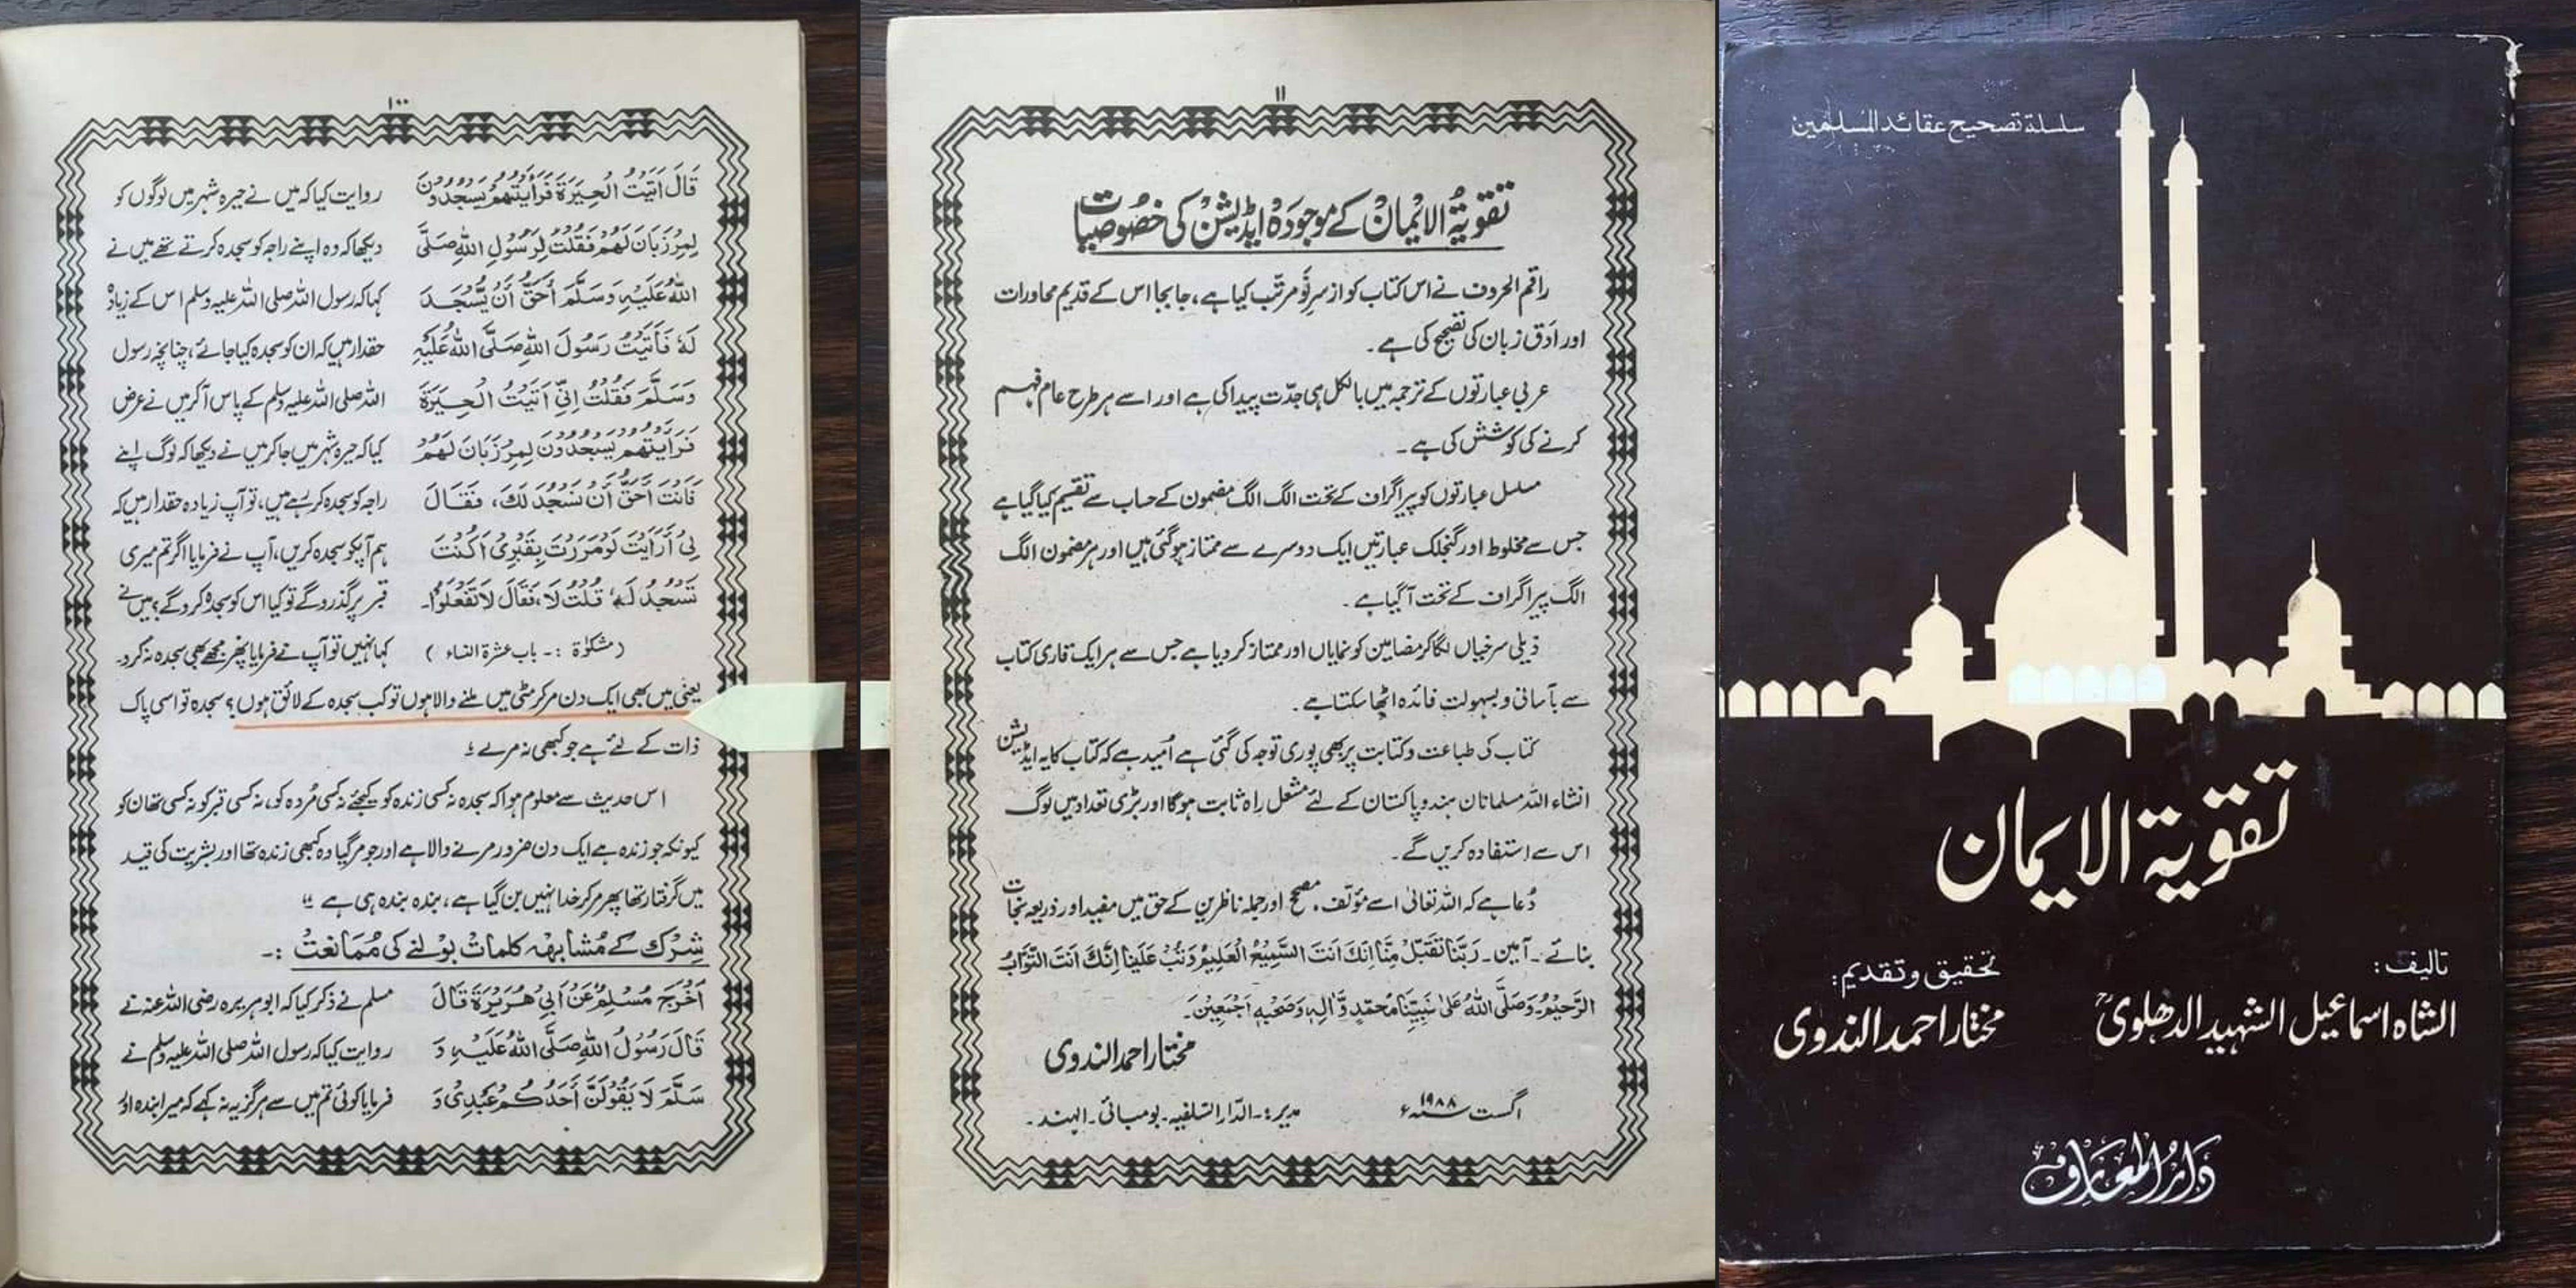 ١٠٠
قَالَ اَتَيْتُ الْحِيْرَةَ فَرَاَيْتُهُمْ يَسْجُدُوْنَ
لِمِرْزَبَانَ لَهُمْ فَقُلْتُ لِرَسُوْلِ اللهِ صَلَّى
اللهُ عَلَيْهِ وَسَلَّمَ اَحَقُّ اَنْ يُّسْجَدَ
لَهٗ فَاَتَيْتُ رَسُوْلَ اللهِ صَلَّى اللهُ عَلَيْهِ
وَسَلَّمَ فَقُلْتُ اِنِّيْ اَتَيْتُ الْحِيْرَةَ
فَرَاَيْتُهُمْ يَسْجُدُوْنَ لِمِرْزَبَانَ لَهُمْ
فَاَنْتَ اَحَقُّ اَنْ نَسْجُدَ لَكَ، فَقَالَ
لِيْ اَرَاَيْتَ لَوْ مَرَرْتَ بِقَبْرِيْ اَكُنْتَ
تَسْجُدُ لَهٗ، قُلْتُ لَا، فَقَالَ لَا تَفْعَلُوْا۔
(مشکوٰۃ :۔ باب عشرۃ النساء )
روایت کیا کہ میں نے حیرہ شہر میں لوگوں کو
دیکھا کہ وہ اپنے راجہ کو سجدہ کرتے تھے میں نے
کہا کہ رسول اللہ صلی اللہ علیہ وسلم اس کے زیادہ
حقدار ہیں کہ ان کو سجدہ کیا جائے، چنانچہ رسول
اللہ صلی اللہ علیہ وسلم کے پاس آ کر میں نے عرض
کیا کہ حیرہ شہر میں جا کر میں نے دیکھا کہ لوگ اپنے
راجہ کو سجدہ کر رہے ہیں، تو آپ زیادہ حقدار ہیں کہ
ہم آپکو سجدہ کریں، آپ نے فرمایا اگر تم میری
قبر پر گذرو گے تو کیا اس کو سجدہ کرو گے؟ میں نے
کہا نہیں تو آپ نے فرمایا پھر مجھے بھی سجدہ نہ کرو۔
یعنی میں بھی ایک دن مر کر مٹی میں ملنے والا ہوں تو کب سجدہ کے لائق ہوں؟ سجدہ تو اسی پاک
ذات کے لئے ہے جو کبھی نہ مرے ۔؛
اس حدیث سے معلوم ہوا کہ سجدہ نہ کسی زندہ کو کیجئے نہ کسی مُردہ کو، نہ کسی قبر کو نہ کسی تھان کو
کیونکہ جو زندہ ہے ایک دن ضرور مرنے والا ہے اور جو مر گیا وہ کبھی زندہ تھا اور بشریت کی قید
میں گرفتار تھا پھر مر کر خدا نہیں بن گیا ہے، بندہ بندہ ہی ہے ؛؛
شِرک کے مُشابہہ کلمات بولنے کی مُمانعت :۔
اَخْرَجَ مُسْلِمٌ عَنْ اَبِيْ هُرَيْرَةَ قَالَ
قَالَ رَسُوْلُ اللهِ صَلَّى اللهُ عَلَيْهِ وَ
سَلَّمَ لَا يَقُوْلَنَّ اَحَدُكُمْ عَبْدِيْ وَ
مسلم نے ذکر کیا کہ ابوہریرہ رضی اللہ عنہ نے
روایت کیا کہ رسول اللہ صلی اللہ علیہ وسلم نے
فرمایا کوئی تم میں سے ہرگز یہ نہ کہے کہ میرا بندہ اور
١١
تقویۃ الایمان کے موجودہ ایڈیشن کی خصوصیات
راقم الحروف نے اس کتاب کو از سرِ نَو مرتب کیا ہے، جا بجا اس کے قدیم محاورات
اور ادَق زبان کی تصحیح کی ہے۔
عربی عبارتوں کے ترجمہ میں بالکل ہی جدّت پیدا کی ہے اور اسے ہر طرح عام فہم
کرنے کی کوشش کی ہے ۔
مسلسل عبارتوں کو پیراگراف کے تحت الگ الگ مضمون کے حساب سے تقسیم کیا گیا ہے
جس سے مخلوط اور گنجلک عبارتیں ایک دوسرے سے ممتاز ہو گئی ہیں اور ہر مضمون الگ
الگ پیراگراف کے تحت آ گیا ہے ۔
ذیلی سرخیاں لگا کر مضامین کو نمایاں اور ممتاز کر دیا ہے جس سے ہر ایک قاری کتاب
سے بآسانی و بسہولت فائدہ اٹھا سکتا ہے ۔
کتاب کی طباعت و کتابت پر بھی پوری توجہ کی گئی ہے اُمید ہے کہ کتاب کا یہ ایڈیشن
انشاء اللہ مسلمانان ہند و پاکستان کے لئے مشعلِ راہ ثابت ہوگا اور بڑی تعداد میں لوگ
اس سے استفادہ کریں گے ۔
دُعا ہے کہ اللہ تعالیٰ اسے مؤلف، مصحح اور جملہ ناظرین کے حق میں مفید اور ذریعہ نجات
بنائے ۔ آمین ۔ رَبَّنَا تَقَبَّلْ مِنَّا اِنَّكَ اَنْتَ السَّمِيْعُ الْعَلِيْمُ وَتُبْ عَلَيْنَا اِنَّكَ اَنْتَ التَّوَّابُ
الرَّحِيْمُ۔ وَصَلَّى اللهُ عَلٰى نَبِيِّنَا مُحَمَّدٍ وَّاٰلِهٖ وَصَحْبِهٖ اَجْمَعِيْنَ۔
مختار احمد الندوی
اگست سنہ ١٩٨٨ء مدیر :۔ الدّار السّلفیہ ۔ بومبائی ۔ الہند ۔
سلسلة تصحيح عقائد المسلمين
تقوية الايمان
تاليف:
الشاه اسماعيل الشهيد الدهلوىؒ
تحقيق وتقديم:
مختار احمد الندوى
دار المعارف